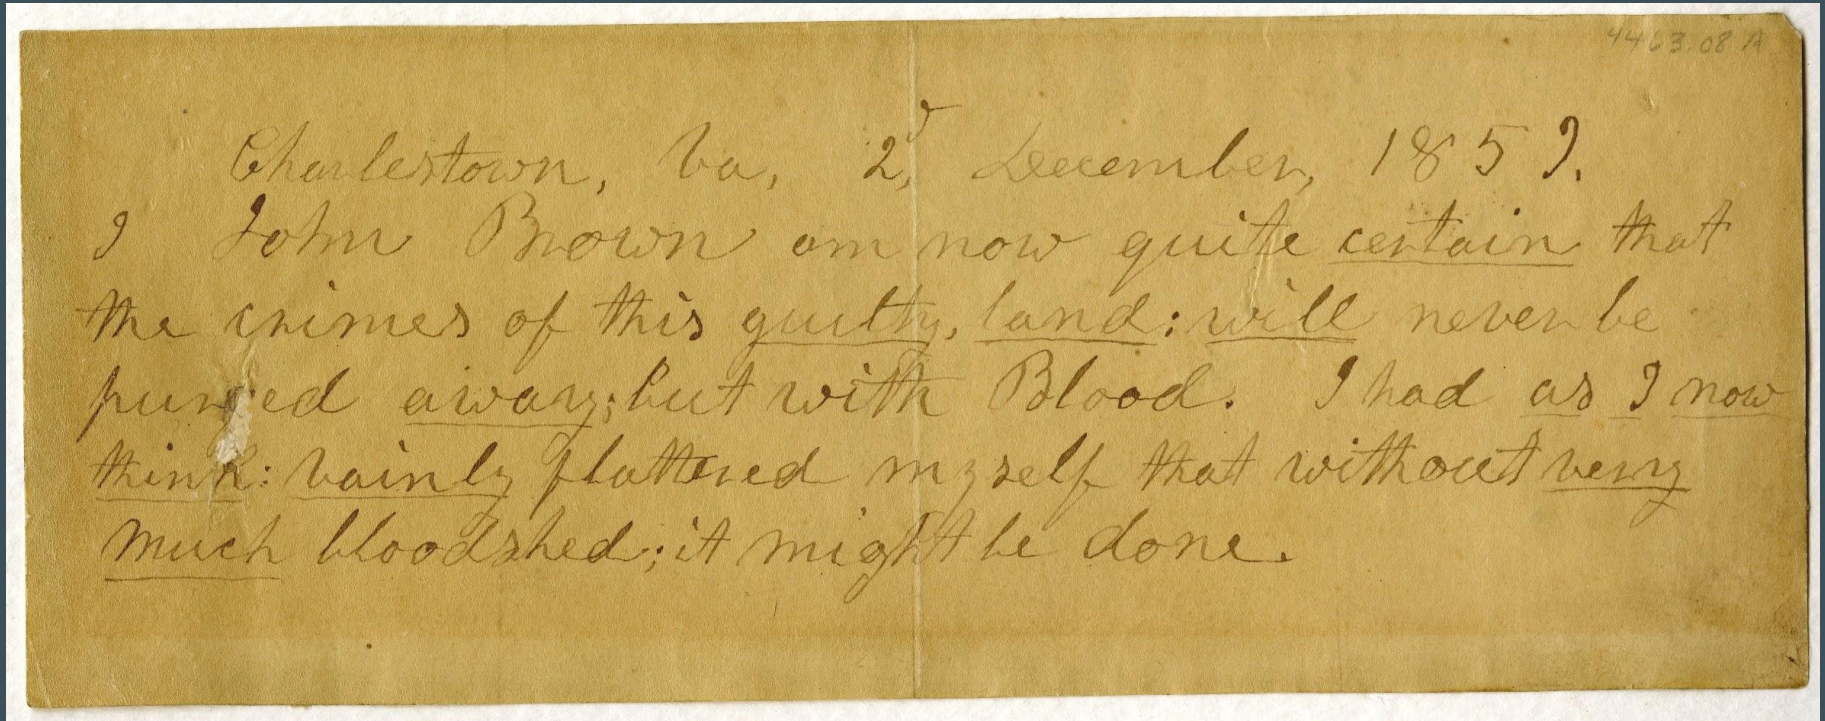 4463.08 A
Charlestown, Va, 2d, December, 1859.
I John Brown am now quite certain that
the crimes of this guilty, land: will never be
purged away; but with Blood. I had as I now
think: vainly flattered myself that without very
much bloodshed; it might be done.